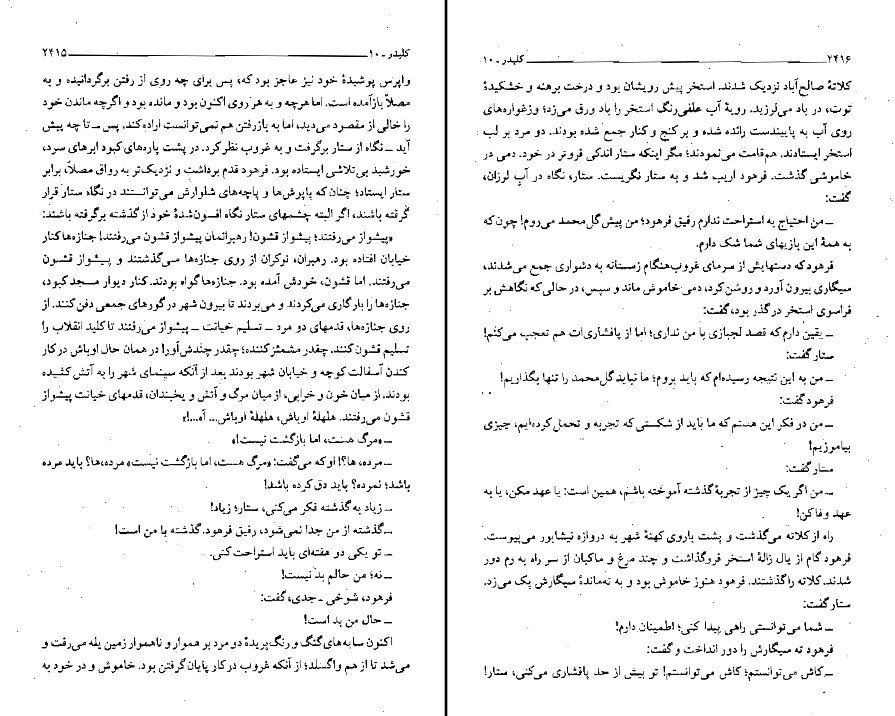 کلیدر ـ ۱۰ ۲۴۱۵
واپرس پوشیدهٔ خود نیز عاجز بود که، پس برای چه روی از رفتن برگردانیده و به
مصلاّ بازآمده است. اما هرچه و به هر روی اکنون بود و مانده بود و اگرچه ماندن خود
را خالی از مقصود می‌دید، اما به بازرفتن هم نمی‌توانست اراده کند. پس ـ تا چه پیش
آید ـ نگاه از ستار برگرفت و به غروب نظر کرد. در پشت پاره‌های کبود ابرهای سرد،
خورشید بی‌تلاشی ایستاده بود. فرهود قدم برداشت و نزدیک‌تر به رواق مصلاّ، برابر
ستار ایستاد؛ چنان که پاپوش‌ها و پاچه‌های شلوارش می‌توانستند در نگاه ستار قرار
گرفته باشند، اگر البته چشمهای ستار نگاه افسون‌شدهٔ خود از گذشته برگرفته باشند:
«پیشواز می‌رفتند؛ پیشواز قشون! رهبرانمان پیشواز قشون می‌رفتند! جنازه‌ها کنار
خیابان افتاده بود. رهبران، نوکران از روی جنازه‌ها می‌گذشتند و پیشواز قشون
می‌رفتند. اما قشون، خودش آمده بود. جنازه‌ها گواه بودند. کنار دیوار مسجد کبود،
جنازه‌ها را بارگاری می‌کردند و می‌بردند تا بیرون شهر در گورهای جمعی دفن کنند. از
روی جنازه‌ها، قدمهای دو مرد ـ تسلیم خیانت ـ پیشواز می‌رفتند تا کلید انقلاب را
تسلیم قشون کنند. چقدر مشمئزکننده؛ چقدر چندش‌آور! در همان حال اوباش در کار
کندن آسفالت کوچه و خیابان شهر بودند بعد از آنکه سینمای شهر را به آتش کشیده
بودند. از میان خون و خرابی، از میان مرگ و آتش و یخبندان، قدمهای خیانت پیشواز
قشون می‌رفتند. هلهلهٔ اوباش، هلهلهٔ اوباش... آه...!»
ـ «مرگ هست، اما بازگشت نیست!»
ـ مرده، ها؟! او که می‌گفت: «مرگ هست، اما بازگشت نیست» مرده، ها؟ باید مرده
باشد؛ نمرده؟ باید دق کرده باشد!
ـ زیاد به گذشته فکر می‌کنی، ستار؛ زیاد!
ـ گذشته از من جدا نمی‌شود، رفیق فرهود. گذشته با من است!
ـ تو یکی دو هفته‌ای باید استراحت کنی.
ـ نه؛ من حالم بد نیست!
فرهود، شوخی ـ جدی، گفت:
ـ حال من بد است!
اکنون سایه‌های گنگ و رنگ‌پریدهٔ دو مرد بر هموار و ناهموار زمین یله می‌رفت و
می‌شد تا از هم واگسلد؛ از آنکه غروب در کار پایان گرفتن بود. خاموش و در خود به
۲۴۱۶ کلیدر ـ ۱۰
کلاتهٔ صالح‌آباد نزدیک شدند. استخر پیش رویشان بود و درخت برهنه و خشکیدهٔ
توت، در باد می‌لرزید. رویهٔ آب علفی‌رنگ استخر را باد ورق می‌زد؛ وزغواره‌های
روی آب به پایین‌دست رانده شده و بر کنج و کنار جمع شده بودند. دو مرد بر لب
استخر ایستادند. هم‌قامت می‌نمودند؛ مگر اینکه ستار اندکی فروتر در خود. دمی در
خاموشی گذشت. فرهود اریب شد و به ستار نگریست. ستار، نگاه در آبِ لوزان،
گفت:
ـ من احتیاج به استراحت ندارم رفیق فرهود؛ من پیش گل‌محمد می‌روم! چون که
به همهٔ این بازیهای شما شک دارم.
فرهود که دستهایش از سرمای غروب‌هنگام زمستانه به دشواری جمع می‌شدند،
سیگاری بیرون آورد و روشن کرد، دمی خاموش ماند و سپس، در حالی که نگاهش بر
فراسوی استخر در گذر بود، گفت:
ـ یقین دارم که قصد لجبازی با من نداری؛ اما از پافشاری‌ات هم تعجب می‌کنم!
ستار گفت:
ـ من به این نتیجه رسیده‌ام که باید بروم؛ ما نباید گل‌محمد را تنها بگذاریم!
فرهود گفت:
ـ من در فکر این هستم که ما باید از شکستی که تجربه و تحمل کرده‌ایم، چیزی
بیاموزیم!
ستار گفت:
ـ من اگر یک چیز از تجربهٔ گذشته آموخته باشم، همین است: یا عهد مکن، یا به
عهد وفا کن!
راه از کلاته می‌گذشت و پشت باروی کهنهٔ شهر به دروازه نیشابور می‌پیوست.
فرهود گام از یال زالهٔ استخر فروگذاشت و چند مرغ و ماکیان از سر راه به رم دور
شدند. کلاته را گذشتند. فرهود هنوز خاموش بود و به ته‌ماندهٔ سیگارش پک می‌زد.
ستار گفت:
ـ شما می‌توانستی راهی پیدا کنی؛ اطمینان دارم!
فرهود ته سیگارش را دور انداخت و گفت:
ـ کاش می‌توانستم؛ کاش می‌توانستم! تو بیش از حد پافشاری می‌کنی، ستار!